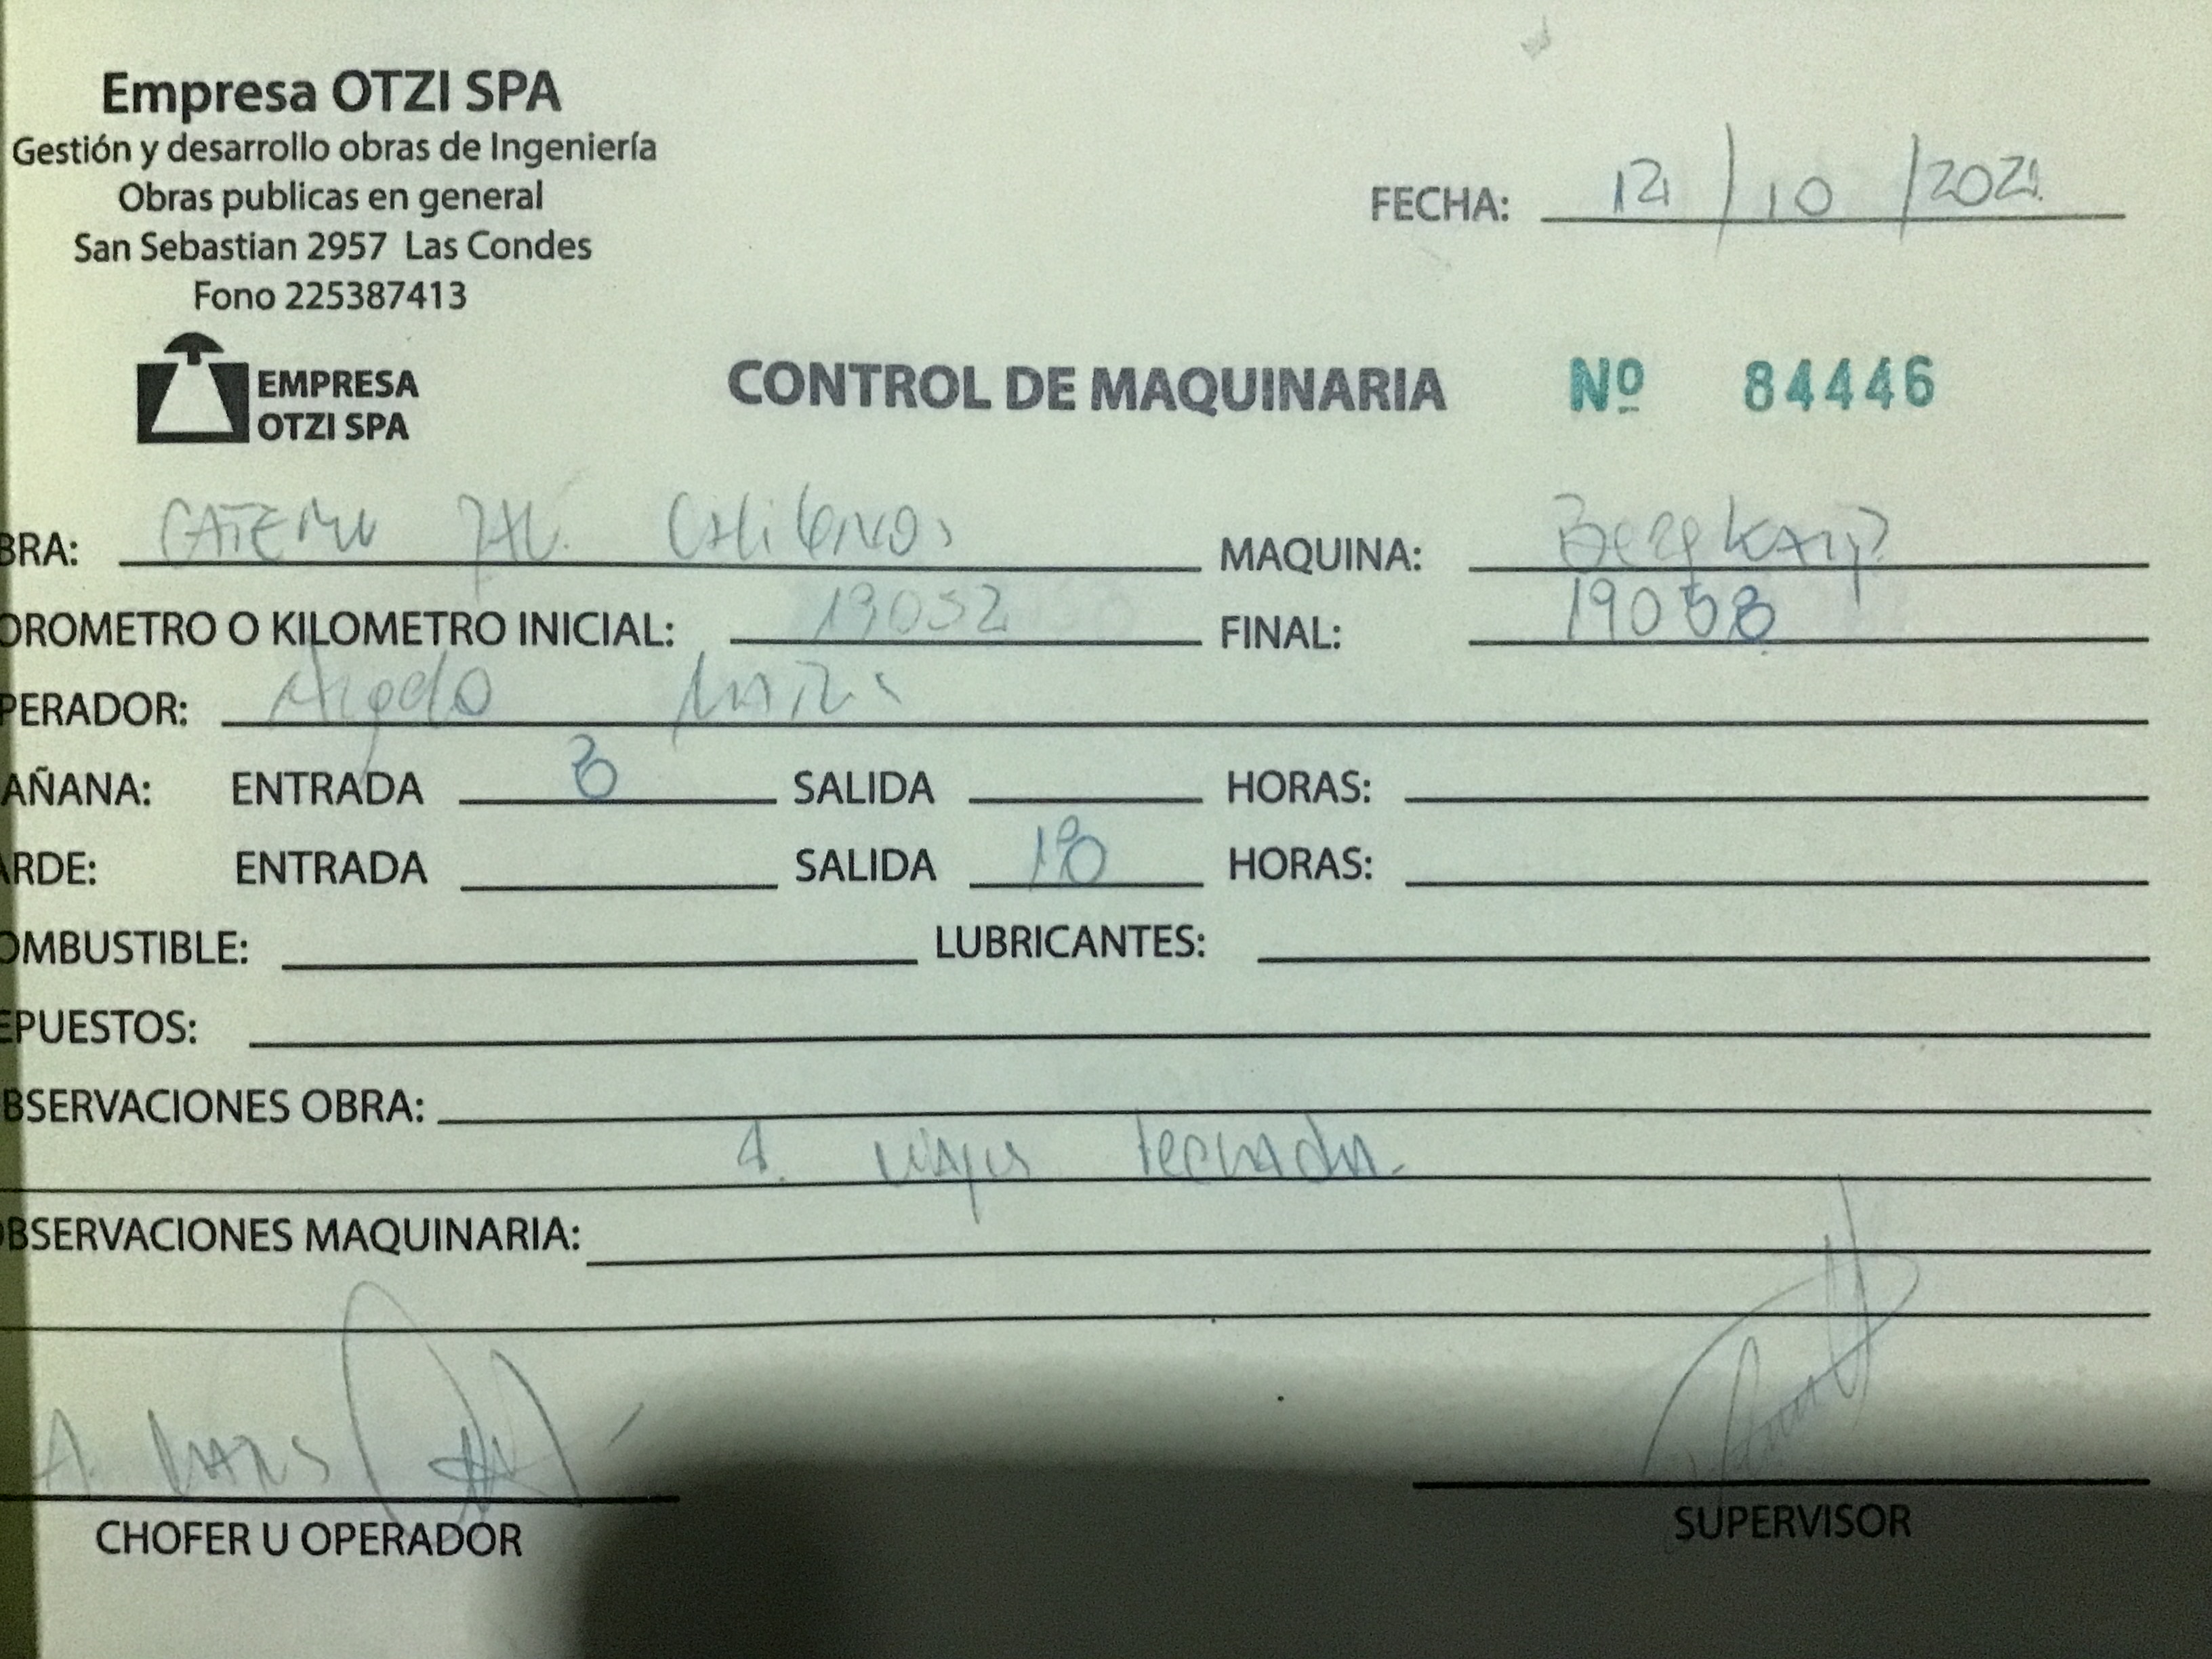 Empresa OTZI SPA
Gestión y desarrollo obras de Ingeniería
Obras publicas en general
San Sebastian 2957 Las Condes
Fono 225387413
FECHA: 12/10/2021
EMPRESA
OTZI SPA
CONTROL DE MAQUINARIA Nº 84446
BRA: CATEMU MAQUINA: Bergkamp
OROMETRO O KILOMETRO INICIAL: 19052 FINAL: 19058
PERADOR: Angelo
AÑANA: ENTRADA 8 SALIDA HORAS:
ARDE: ENTRADA SALIDA 18 HORAS:
OMBUSTIBLE: LUBRICANTES:
EPUESTOS:
BSERVACIONES OBRA:
4. viajes lechada.
BSERVACIONES MAQUINARIA:
A.
CHOFER U OPERADOR SUPERVISOR